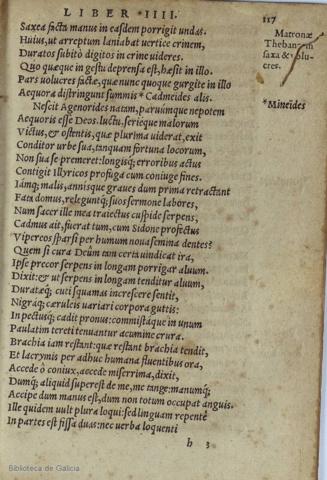 LIBER IIII.
117
Saxea facta manus in easdem porrigit undas.
Huius, ut arreptum laniabat uertice crinem,
Duratos subitò digitos in crine uideres.
Quo quæque in gestu deprensa est, hæsit in illo.
Pars uolucres factæ, quæ nunc quoque gurgite in illo
Aequora distringunt summis * Cadmeides alis.
Nescit Agenorides natam, paruumque nepotem
Aequoris esse Deos. luctu, serieque malorum
Victus, & ostentis, quæ plurima uiderat, exit
Conditor urbe sua, tanquam fortuna locorum,
Non sua se premeret: longisq; erroribus actus
Contigit Illyricos profuga cum coniuge fines.
Iamq; malis, annisque graues dum prima retractant
Fata domus, releguntq; suos sermone labores,
Num sacer ille mea traiectus cuspide serpens,
Cadmus ait, fuerat tum, cum Sidone profectus
Vipereos sparsi per humum noua semina dentes?
Quem si cura Deûm tam certa uindicat ira,
Ipse precor serpens in longam porrigar aluum.
Dixit: & ut serpens in longam tenditur aluum,
Duratæq; cuti squamas increscere sentit,
Nigraq; cæruleis uariari corpora guttis:
In pectusq; cadit pronus: commistáque in unum
Paulatim tereti tenuantur acumine crura.
Brachia iam restant: quæ restant brachia tendit,
Et lacrymis per adhuc humana fluentibus ora,
Accede ô coniux, accede miserrima, dixit,
Dumq; aliquid superest de me, me tange: manumq;
Accipe dum manus est, dum non totum occupat anguis.
Ille quidem uult plura loqui: sed linguam repentè
In partes est fissa duas: nec uerba loquenti
h 3
Matronæ
Thebanæ in
saxa & uolu-
cres.
*Mineides
Biblioteca de Galicia